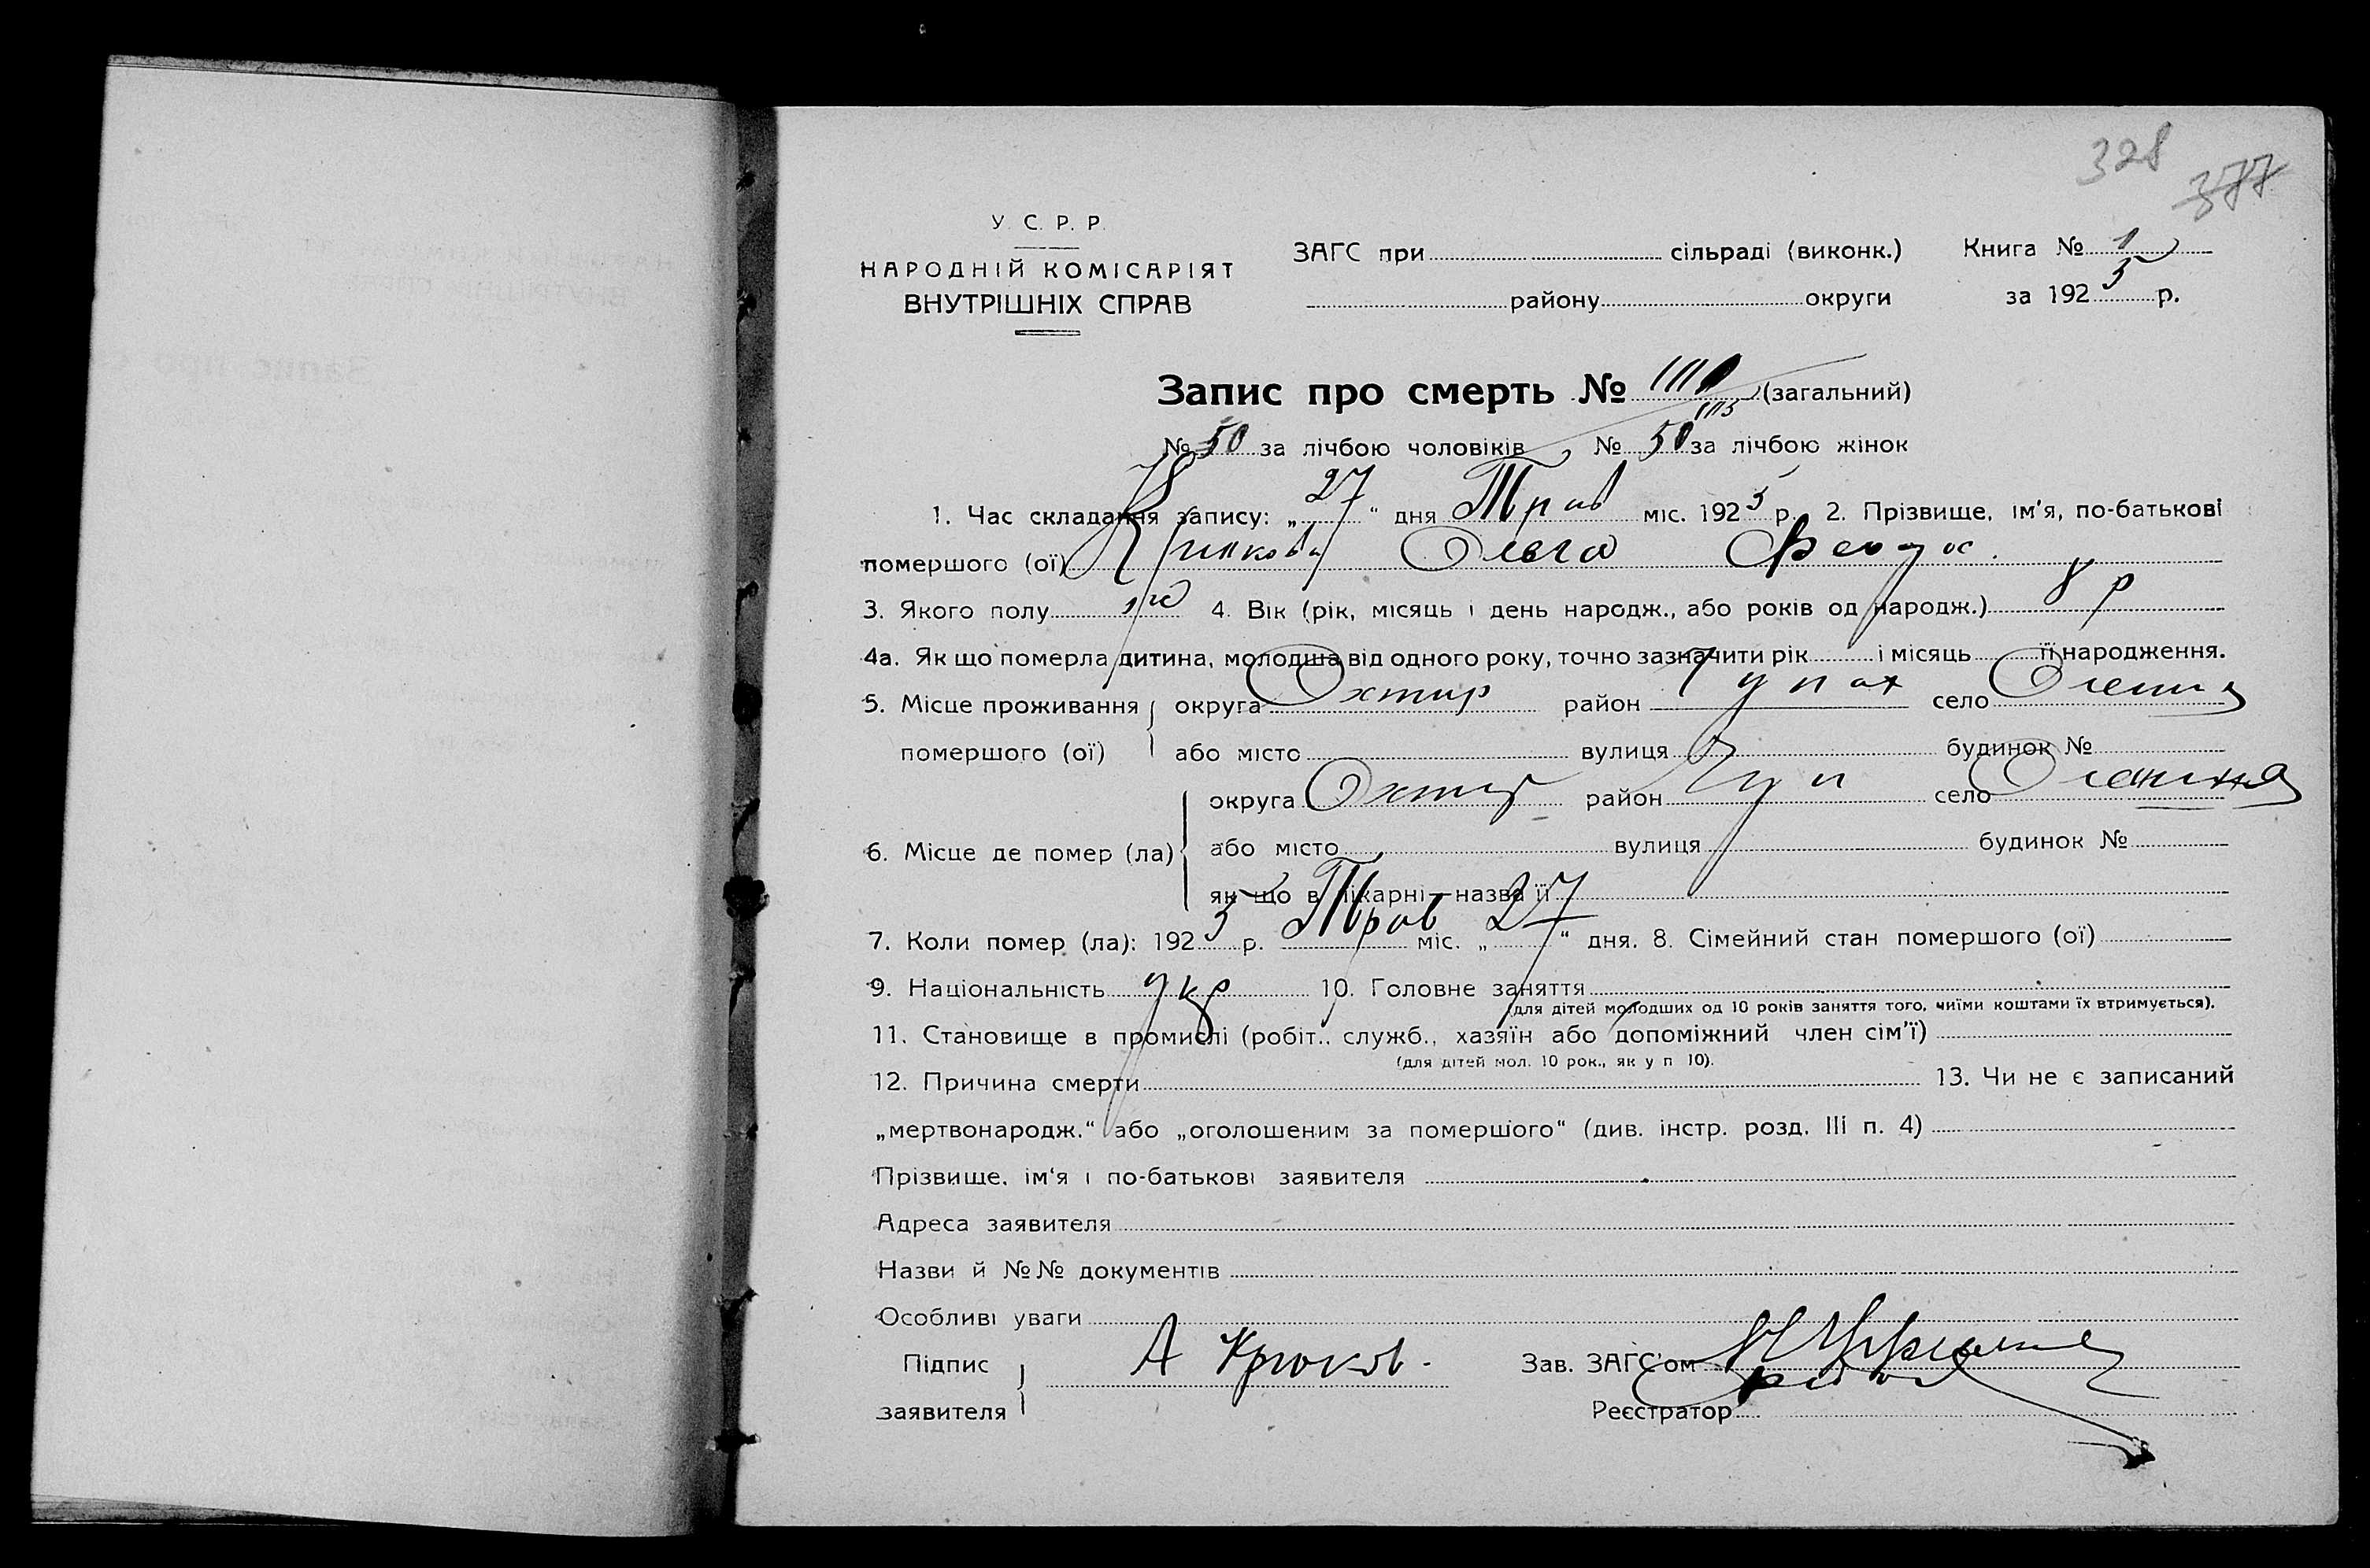 328
377
У. С. Р. Р.
НАРОДНІЙ КОМІСАРІЯТ
ВНУТРІШНІХ СПРАВ
ЗАГС при сільраді (виконк.)
району округи
Книга № 1
за 1925 р.
Запис про смерть № (загальний)
№ 50 за лічбою чоловіків № 50 за лічбою жінок
1. Час складання запису: „27“ дня Трав міс. 1925 р. 2. Прізвище, ім'я, по-батькові
помершого (ої) Ольга Федос.
3. Якого полу ж 4. Вік (рік, місяць і день народж., або років од народж.) 8 р
4а. Як що померла дитина, молодша від одного року, точно зазначити рік і місяць її народження.
5. Місце проживання округа Охтир район Чупах село
помершого (ої) або місто вулиця будинок №
округа Охтир район Чуп село
6. Місце де помер (ла) або місто вулиця будинок №
як що в лікарні—назва її
7. Коли помер (ла): 1925 р. Трав міс. „27“ дня. 8. Сімейний стан помершого (ої)
9. Національність укр 10. Головне заняття
(для дітей молодших од 10 років заняття того, чиїми коштами їх втримується).
11. Становище в промислі (робіт., служб., хазяїн або допоміжний член сім'ї)
(для дітей мол. 10 рок., як у п 10).
12. Причина смерти 13. Чи не є записаний
„мертвонародж.“ або „оголошеним за помершого“ (див. інстр. розд. III п. 4)
Прізвище, ім'я і по-батькові заявителя
Адреса заявителя
Назви й №№ документів
Особливі уваги
Підпис
заявителя
А Крюков
Зав. ЗАГС'ом
Реєстратор